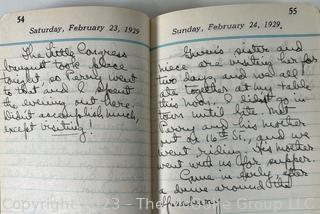 54
Saturday, February 23, 1929
The Little Congress
banquet took place
tonight so Perry went
to that and I spent
the evening out here.
Didn't accomplish much,
except visiting!
55
Sunday, February 24, 1929
sister and
niece are visiting her for
two days, and we all
ate together at my table
this noon. I didn't go in
town until late. Met
Perry and his mother
out on 16th St., and we
went riding. His mother
went with us for supper.
Came in early, after
a drive around the